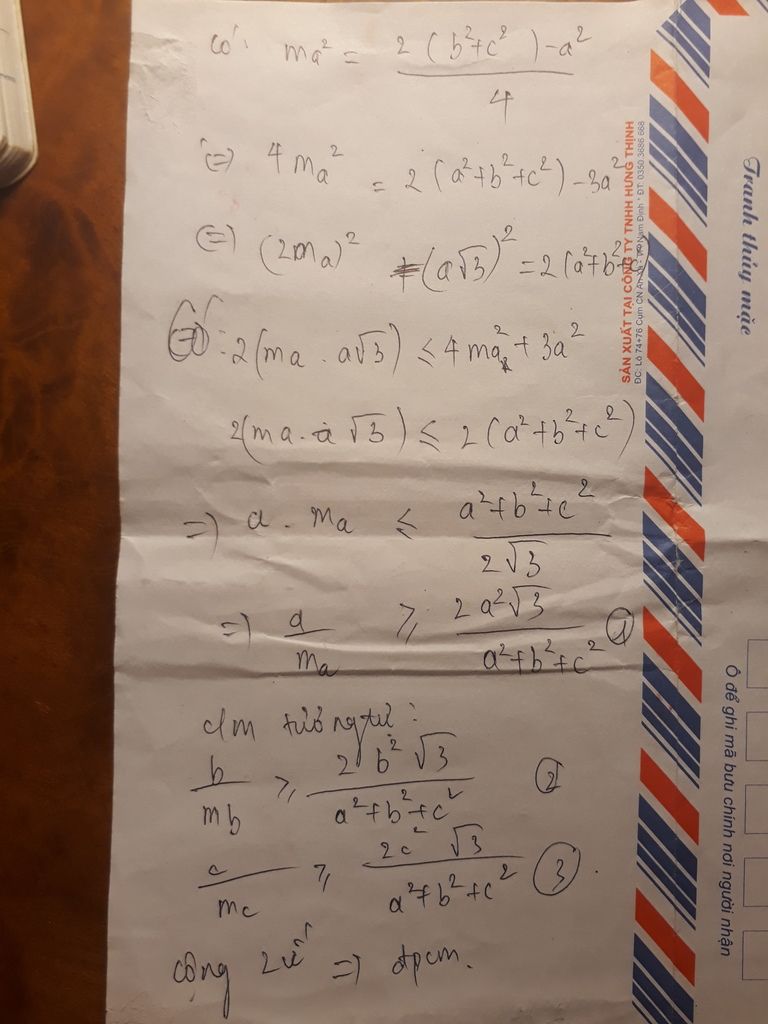 Có: ma² = (2(b²+c²)-a²)/4
(=) 4ma² = 2(a²+b²+c²)-3a²
(=) (2ma)² + (a√3)² = 2(a²+b²+c²)
Có: 2(ma.a√3) ≤ 4ma² + 3a²
2(ma.a√3) ≤ 2(a²+b²+c²)
=) a.ma ≤ (a²+b²+c²)/(2√3)
=) a/ma ≥ (2a²√3)/(a²+b²+c²) ①
c/m tương tự:
b/mb ≥ (2b²√3)/(a²+b²+c²) ②
c/mc ≥ (2c²√3)/(a²+b²+c²) ③.
cộng 2 vế =) đpcm.
SẢN XUẤT TẠI CÔNG TY TNHH HƯNG THỊNH
ĐC: Lô 74+76 Cụm CN An Xá - TP Nam Định * ĐT: 0350 3686 668
Tranh thủy mặc
Ô để ghi mã bưu chính nơi người nhận